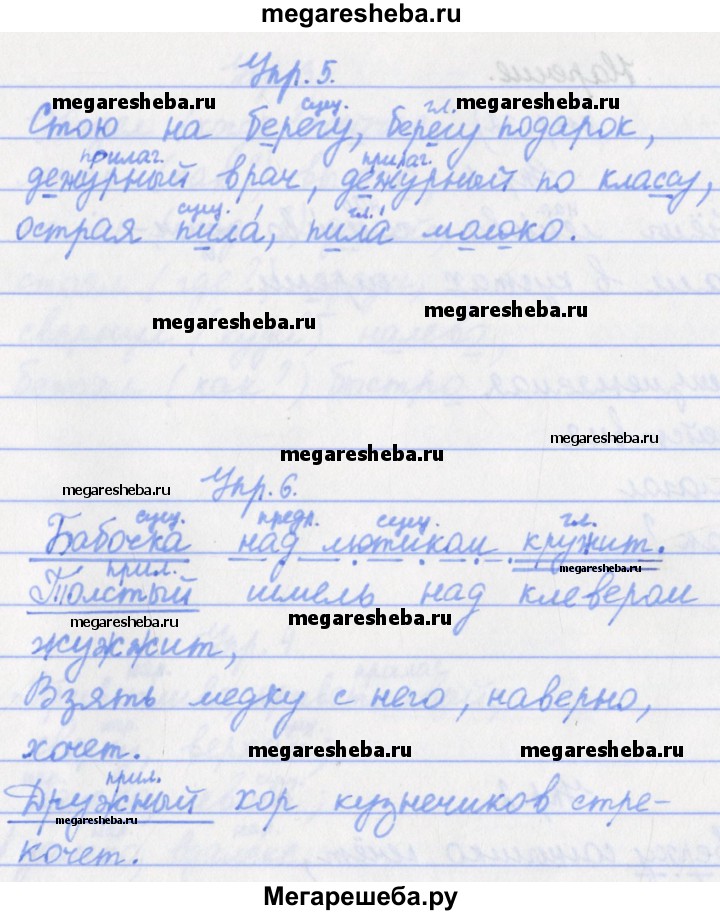 megaresheba.ru
Упр. 5.
megaresheba.ru сущ. гл. megaresheba.ru
Стою на берегу, берегу подарок,
прилаг. прилаг.
дежурный врач, дежурный по классу,
сущ. гл.
острая пила, пила молоко.
megaresheba.ru megaresheba.ru
megaresheba.ru megaresheba.ru
megaresheba.ru Упр. 6.
сущ. предл. сущ. гл.
Бабочка над лютиком кружит.
прил. megaresheba.ru
Толстый шмель над клевером
megaresheba.ru megaresheba.ru
жужжит,
Взять медку с него, наверно,
хочет. megaresheba.ru megaresheba.ru
прил.
Дружный хор кузнечиков стре-
megaresheba.ru
кочет.
Мегарешеба.ру